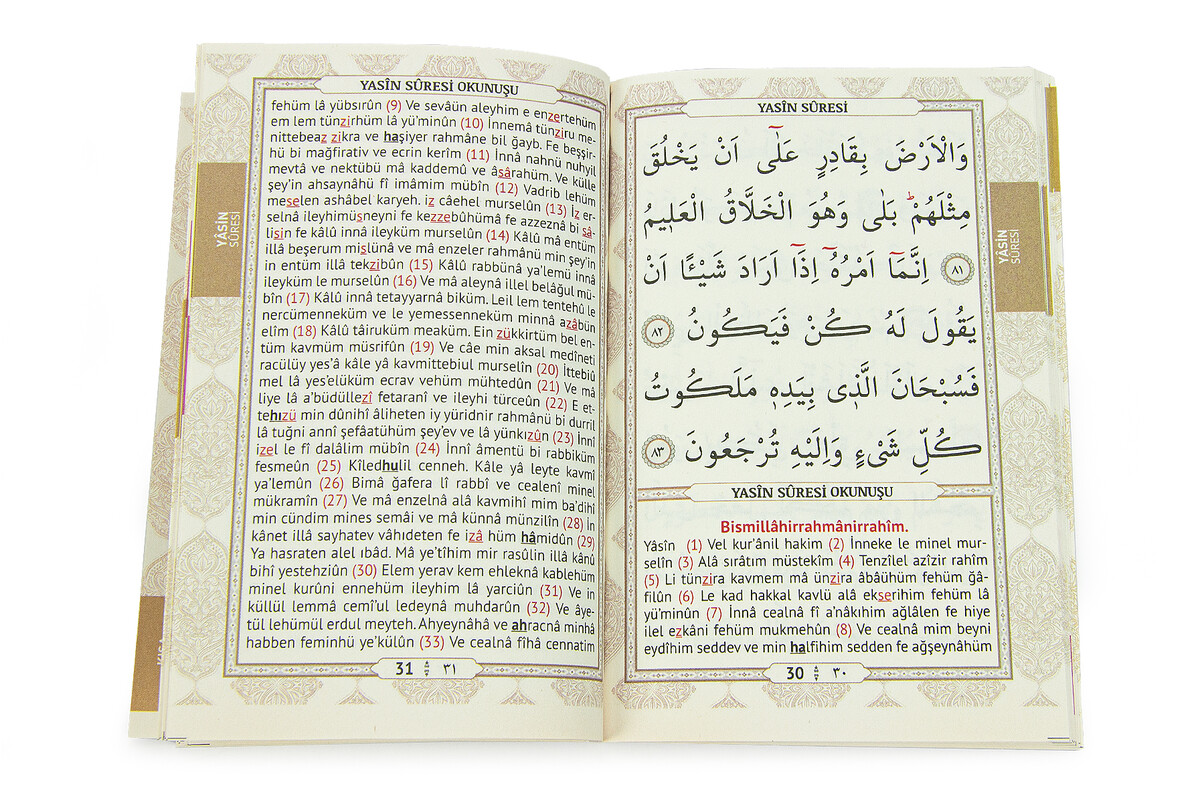 YASÎN SÛRESİ
وَالْاَرْضَ بِقَادِرٍ عَلٰٓى اَنْ يَخْلُقَ
مِثْلَهُمْۜ بَلٰى وَهُوَ الْخَلَّاقُ الْعَل۪يمُ
﴿٨١﴾ اِنَّمَٓا اَمْرُهُٓ اِذَٓا اَرَادَ شَيْـًٔا اَنْ
يَقُولَ لَهُ كُنْ فَيَكُونُ ﴿٨٢﴾
فَسُبْحَانَ الَّذ۪ى بِيَدِه۪ مَلَكُوتُ
كُلِّ شَىْءٍ وَاِلَيْهِ تُرْجَعُونَ ﴿٨٣﴾
YASÎN SÛRESİ OKUNUŞU
Bismillâhirrahmânirrahîm.
Yâsîn (1) Vel kur’ânil hakim (2) İnneke le minel mur-
selîn (3) Alâ sırâtım müstekîm (4) Tenzîlel azîzir rahîm
(5) Li tünzira kavmem mâ ünzira âbâühüm fehüm ğâ-
filûn (6) Le kad hakkal kavlü alâ ekserihim fehüm lâ
yü’minûn (7) İnnâ cealnâ fî a’nâkıhim ağlâlen fe hiye
ilel ezkâni fehüm mukmehûn (8) Ve cealnâ mim beyni
eydîhim seddev ve min halfihim sedden fe ağşeynâhüm
30 ٣٠
YÂSİN
SÛRESİ
YASÎN SÛRESİ OKUNUŞU
fehüm lâ yübsırûn (9) Ve sevâün aleyhim e enzertehüm
em lem tünzirhüm lâ yü’minûn (10) İnnemâ tünziru me-
nittebeaz zikra ve haşiyer rahmâne bil ğayb. Fe beşşir-
hü bi mağfirativ ve ecrin kerîm (11) İnnâ nahnü nuhyil
mevtâ ve nektübü mâ kaddemû ve âsârahüm. Ve külle
şey’in ahsaynâhü fî imâmim mübîn (12) Vadrib lehüm
meselen ashâbel karyeh. iz câehel murselûn (13) İz er-
selnâ ileyhimüsneyni fe kezzebûhümâ fe azzeznâ bi sâ-
lisin fe kâlû innâ ileyküm murselûn (14) Kâlû mâ entüm
illâ beşerum mislünâ ve mâ enzeler rahmânü min şey’in
in entüm illâ tekzibûn (15) Kâlû rabbünâ ya’lemü innâ
ileyküm le murselûn (16) Ve mâ aleynâ illel belâğul mü-
bîn (17) Kâlû innâ tetayyarnâ biküm. Leil lem tentehû le
nercümenneküm ve le yemessenneküm minnâ azâbün
elîm (18) Kâlû tâiruküm meaküm. Ein zükkirtüm bel en-
tüm kavmüm müsrifûn (19) Ve câe min aksal medîneti
racülüy yes’â kâle yâ kavmittebiul murselîn (20) İttebiû
mel lâ yes’elüküm ecrav vehüm mühtedûn (21) Ve mâ
liye lâ a’büdüllezî fetaranî ve ileyhi türceûn (22) E et-
tehızü min dûnihî âliheten iy yüridnir rahmânü bi durril
lâ tuğni annî şefâatühüm şey’ev ve lâ yünkızûn (23) İnnî
izel le fî dalâlim mübîn (24) İnnî âmentü bi rabbiküm
fesmeûn (25) Kîledhulil cenneh. Kâle yâ leyte kavmî
ya’lemûn (26) Bimâ ğafera lî rabbî ve cealenî minel
mükramîn (27) Ve mâ enzelnâ alâ kavmihî mim ba’dihî
min cündim mines semâi ve mâ künnâ münzilîn (28) İn
kânet illâ sayhatev vâhıdeten fe izâ hüm hâmidûn (29)
Ya hasraten alel ıbâd. Mâ ye’tîhim mir rasûlin illâ kânû
bihî yestehziûn (30) Elem yerav kem ehleknâ kablehüm
minel kurûni ennehüm ileyhim lâ yarciûn (31) Ve in
küllül lemmâ cemî’ul ledeynâ muhdarûn (32) Ve âye-
tül lehümül erdul meyteh. Ahyeynâhâ ve ahracnâ minhâ
habben feminhü ye’külûn (33) Ve cealnâ fîhâ cennatim
31 ٣١
YÂSİN
SÛRESİ